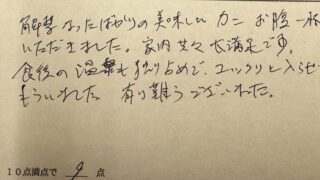 解禁なったばかりの美味しいカニ お腹一杯
いただきました。家内共々大満足です。
食後の温泉も独り占めで、ユックリと入らせて
もらいました。有り難うございました。
10点満点で 9 点